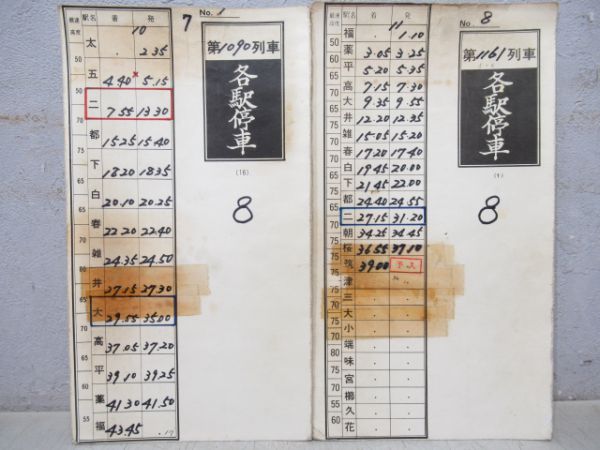 最高速度 駅名 着 発
10
太 . 2.35
50
五 4.40 × 5.15
50
二 7.55 13.30
70
都 15.25 15.40
下 18.20 18.35
白 20.10 20.25
75
春 22.20 22.40
雄 24.35 24.50
井 27.15 27.30
大 29.55 35.00
70
高 37.05 37.20
平 39.10 39.25
薬 41.30 41.50
50
福 43.45 . 17
7
No. 1
第1090列車
各駅停車
(16)
8
駅名 着 発
11
福 . 1.10
50
薬 3.05 3.25
平 5.20 5.35
高 7.15 7.30
70
大 9.35 9.55
井 12.20 12.35
雄 15.05 15.20
75
春 17.20 17.40
白 19.45 20.00
下 21.45 22.00
70
都 24.40 24.55
65
二 27.15 31.20
70
朝 34.25 34.45
75
桜 36.55 37.10
筑 39.00
津 . .
三 . .
70
大 . .
75
小 . .
80
端 . .
味 . .
50
宮 . .
70
櫛 . .
久 . .
60
花 . .
No. 8
第1161列車
各駅停車
(1)
8